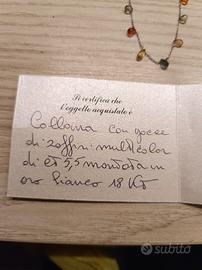 Si certifica che
l'oggetto acquistato è
Collana con gocce
di zaffiri multicolor
di ct 5,5 montata in
oro bianco 18 KT
subito